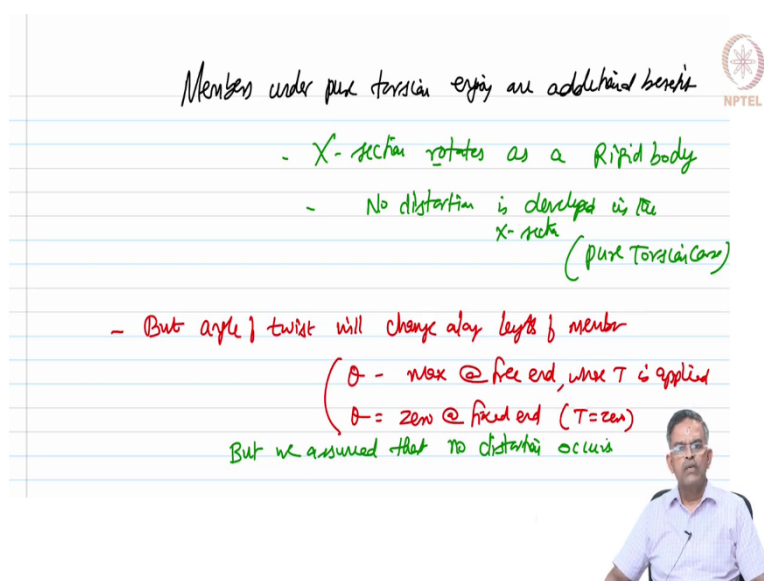 Members under pure torsion enjoy an additional benefit
NPTEL
- X-section rotates as a Rigid body
- No distortion is developed in the
X-section
(pure Torsion case)
- But angle of twist will change along length of member
θ - max @ free end, where T is applied
θ = zero @ fixed end (T=zero)
But we assumed that no distortion occurs